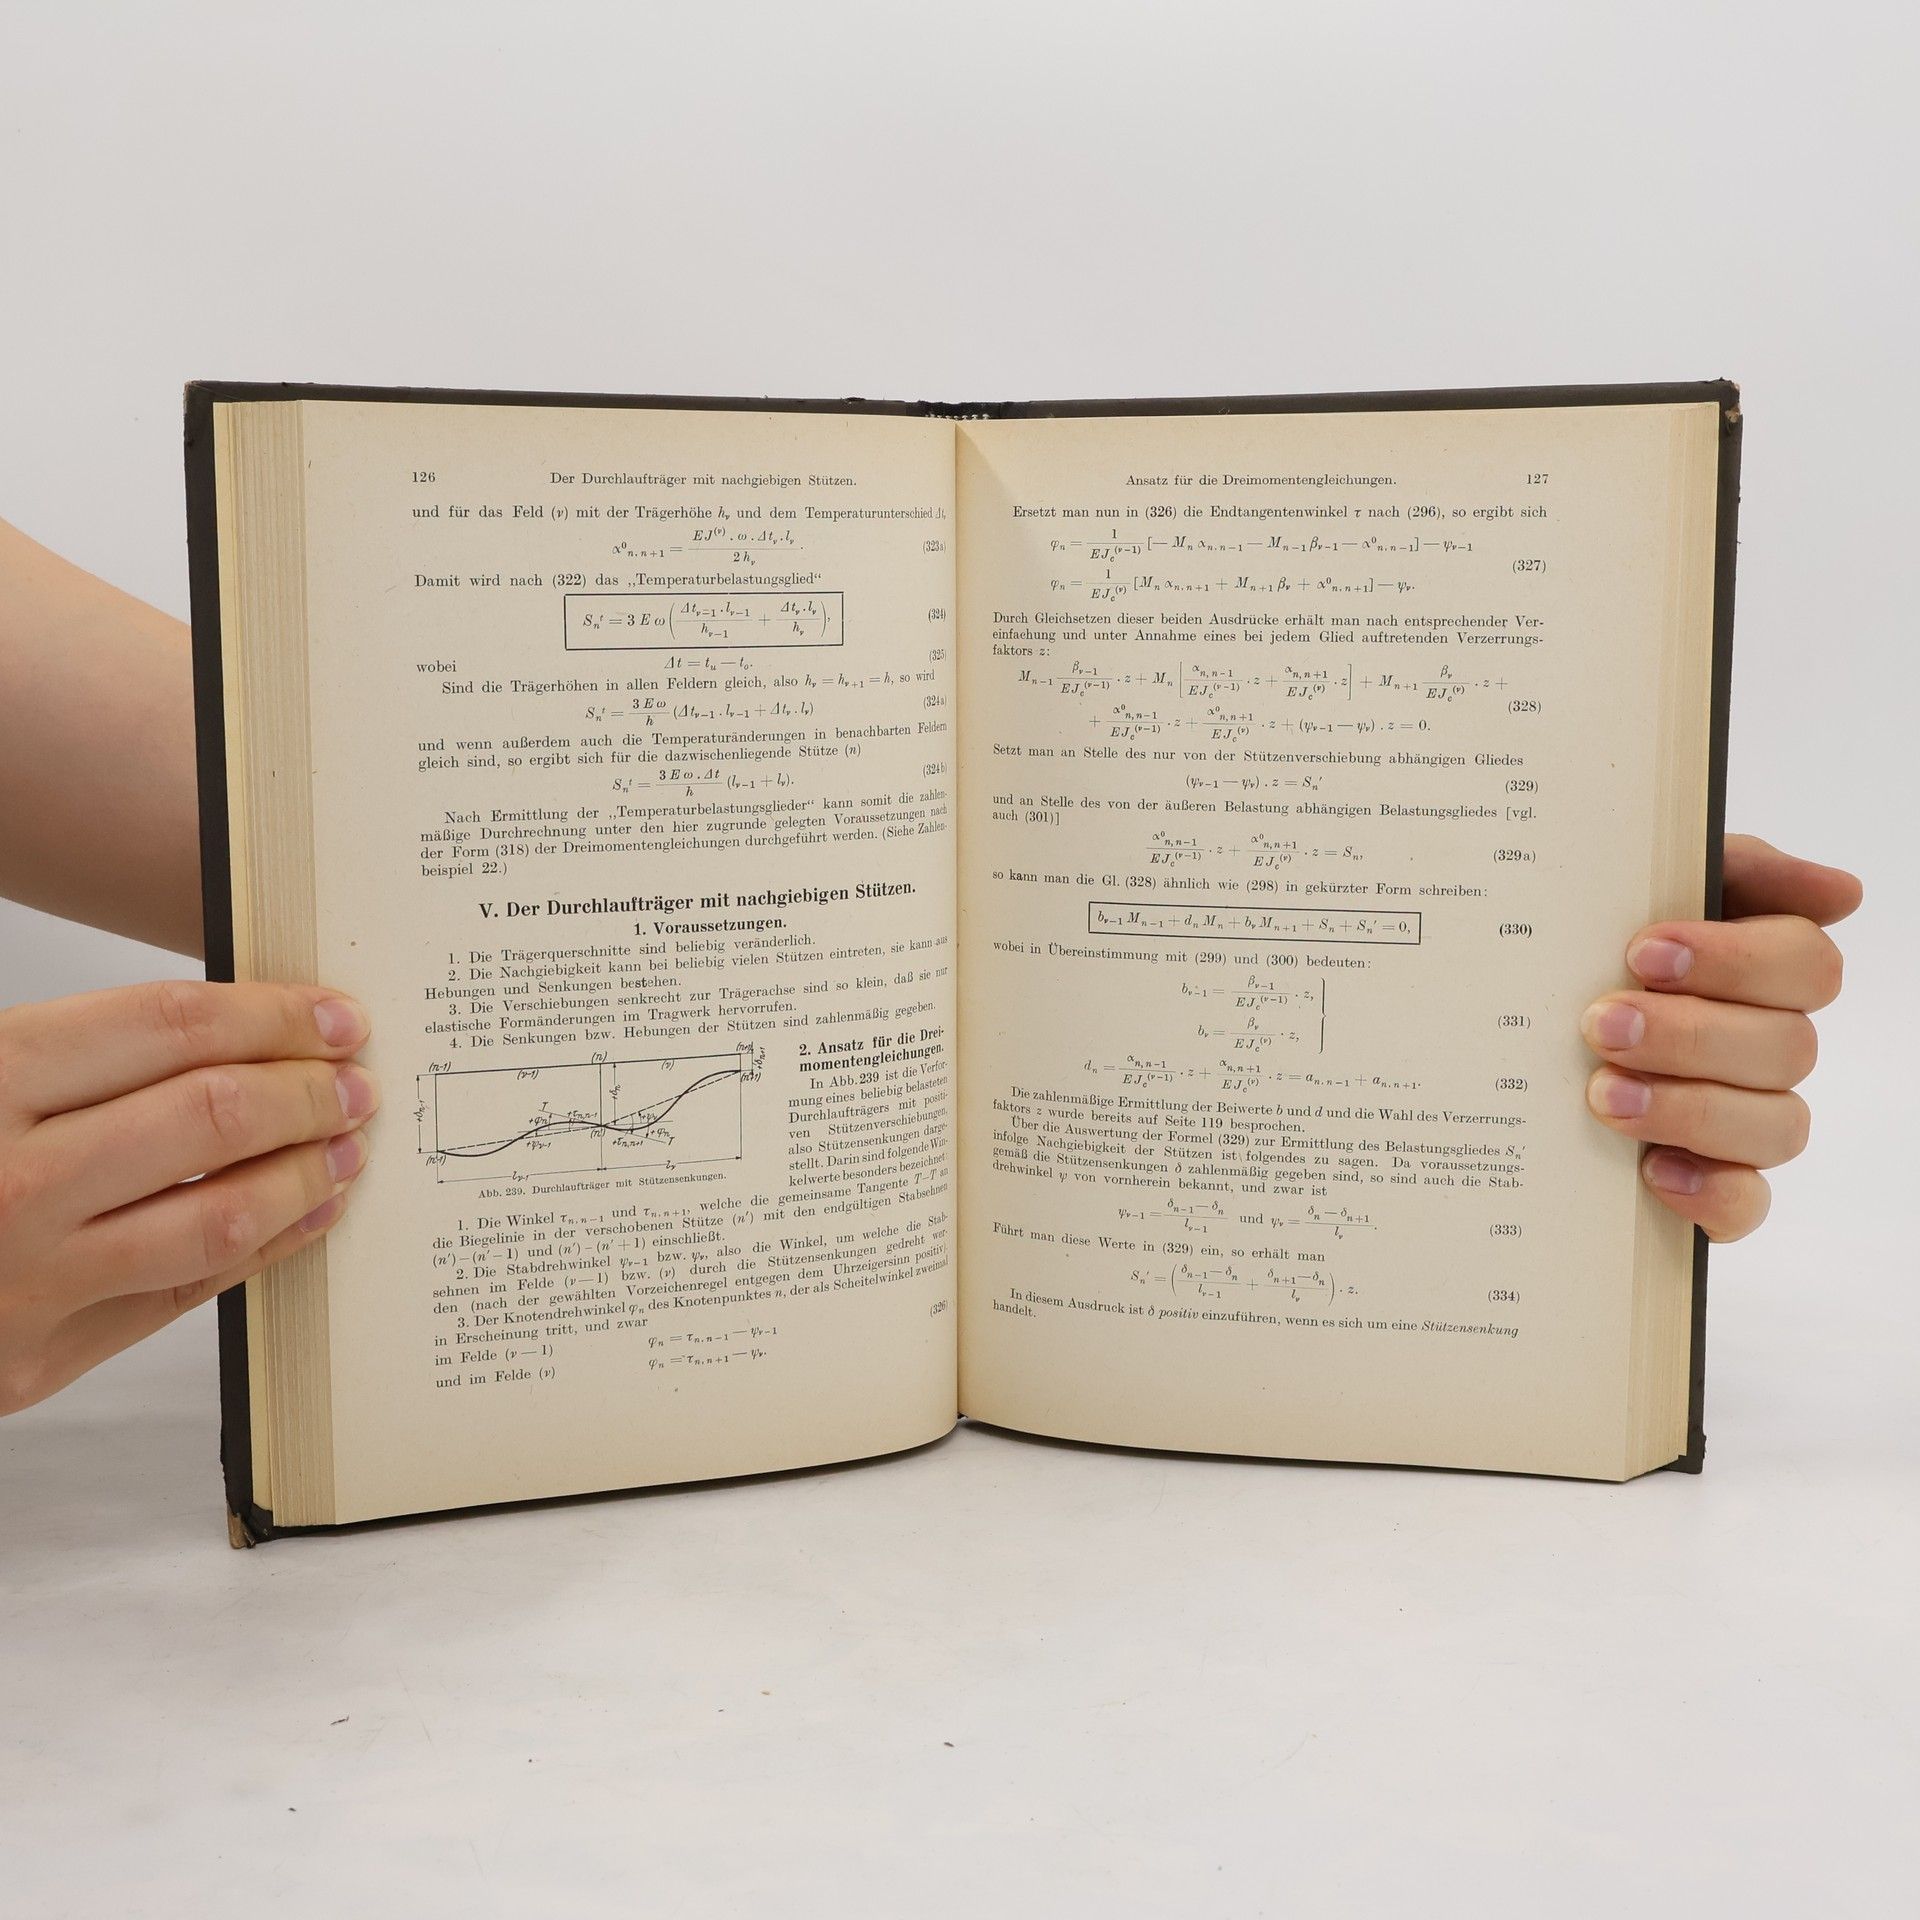 126 Der Durchlaufträger mit nachgiebigen Stützen.
und für das Feld (ν) mit der Trägerhöhe hν und dem Temperaturunterschied Δtν
α⁰n, n+1 = EJ(ν) . ω . Δtν . lν / 2 hν . (323a)
Damit wird nach (322) das „Temperaturbelastungsglied“
Snᵗ = 3 E ω (Δtν−1 . lν−1 / hν−1 + Δtν . lν / hν), (324)
wobei Δt = tu — to. (325)
Sind die Trägerhöhen in allen Feldern gleich, also hν = hν+1 = h, so wird
Snᵗ = 3 E ω / h (Δtν−1 . lν−1 + Δtν . lν) (324a)
und wenn außerdem auch die Temperaturänderungen in benachbarten Feldern
gleich sind, so ergibt sich für die dazwischenliegende Stütze (n)
Snᵗ = 3 E ω . Δt / h (lν−1 + lν). (324b)
Nach Ermittlung der „Temperaturbelastungsglieder“ kann somit die zahlen-
mäßige Durchrechnung unter den hier zugrunde gelegten Voraussetzungen nach
der Form (318) der Dreimomentengleichungen durchgeführt werden. (Siehe Zahlen-
beispiel 22.)
V. Der Durchlaufträger mit nachgiebigen Stützen.
1. Voraussetzungen.
1. Die Trägerquerschnitte sind beliebig veränderlich.
2. Die Nachgiebigkeit kann bei beliebig vielen Stützen eintreten, sie kann aus
Hebungen und Senkungen bestehen.
3. Die Verschiebungen senkrecht zur Trägerachse sind so klein, daß sie nur
elastische Formänderungen im Tragwerk hervorrufen.
4. Die Senkungen bzw. Hebungen der Stützen sind zahlenmäßig gegeben.
(n-1) (ν-1) (n) (ν) (n+1)
+δn-1 +δn +δn+1
T +φn +τn,n-1 +ψν-1 (n') +τn,n+1 +ψν +φn T
(n'-1) (n'+1)
lν-1 lν
Abb. 239. Durchlaufträger mit Stützensenkungen.
2. Ansatz für die Drei-
momentengleichungen.
In Abb. 239 ist die Verfor-
mung eines beliebig belasteten
Durchlaufträgers mit positi-
ven Stützenverschiebungen,
also Stützensenkungen darge-
stellt. Darin sind folgende Win-
kelwerte besonders bezeichnet:
1. Die Winkel τn, n−1 und τn, n+1, welche die gemeinsame Tangente T—T an
die Biegelinie in der verschobenen Stütze (n') mit den endgültigen Stabsehnen
(n') — (n' − 1) und (n') — (n' + 1) einschließt.
2. Die Stabdrehwinkel ψν−1 bzw. ψν, also die Winkel, um welche die Stab-
sehnen im Felde (ν — 1) bzw. (ν) durch die Stützensenkungen gedreht wer-
den (nach der gewählten Vorzeichenregel entgegen dem Uhrzeigersinn positiv).
3. Der Knotendrehwinkel φn des Knotenpunktes n, der als Scheitelwinkel zweimal
in Erscheinung tritt, und zwar
im Felde (ν — 1) φn = τn, n−1 — ψν−1 (326)
und im Felde (ν) φn = τn, n+1 — ψν.
Ansatz für die Dreimomentengleichungen. 127
Ersetzt man nun in (326) die Endtangentenwinkel τ nach (296), so ergibt sich
φn = 1 / EJc(ν−1) [— Mn αn, n−1 — Mn−1 βν−1 — α⁰n, n−1] — ψν−1
(327)
φn = 1 / EJc(ν) [Mn αn, n+1 + Mn+1 βν + α⁰n, n+1] — ψν.
Durch Gleichsetzen dieser beiden Ausdrücke erhält man nach entsprechender Ver-
einfachung und unter Annahme eines bei jedem Glied auftretenden Verzerrungs-
faktors z:
Mn−1 βν−1 / EJc(ν−1) . z + Mn [αn, n−1 / EJc(ν−1) . z + αn, n+1 / EJc(ν) . z] + Mn+1 βν / EJc(ν) . z +
(328)
+ α⁰n, n−1 / EJc(ν−1) . z + α⁰n, n+1 / EJc(ν) . z + (ψν−1 — ψν) . z = 0.
Setzt man an Stelle des nur von der Stützenverschiebung abhängigen Gliedes
(ψν−1 — ψν) . z = Sn' (329)
und an Stelle des von der äußeren Belastung abhängigen Belastungsgliedes [vgl.
auch (301)]
α⁰n, n−1 / EJc(ν−1) . z + α⁰n, n+1 / EJc(ν) . z = Sn, (329a)
so kann man die Gl. (328) ähnlich wie (298) in gekürzter Form schreiben:
bν−1 Mn−1 + dn Mn + bν Mn+1 + Sn + Sn' = 0, (330)
wobei in Übereinstimmung mit (299) und (300) bedeuten:
bν−1 = βν−1 / EJc(ν−1) . z,
(331)
bν = βν / EJc(ν) . z,
dn = αn, n−1 / EJc(ν−1) . z + αn, n+1 / EJc(ν) . z = an, n−1 + an, n+1. (332)
Die zahlenmäßige Ermittlung der Beiwerte b und d und die Wahl des Verzerrungs-
faktors z wurde bereits auf Seite 119 besprochen.
Über die Auswertung der Formel (329) zur Ermittlung des Belastungsgliedes Sn'
infolge Nachgiebigkeit der Stützen ist folgendes zu sagen. Da voraussetzungs-
gemäß die Stützensenkungen δ zahlenmäßig gegeben sind, so sind auch die Stab-
drehwinkel ψ von vornherein bekannt, und zwar ist
ψν−1 = δn−1 — δn / lν−1 und ψν = δn — δn+1 / lν . (333)
Führt man diese Werte in (329) ein, so erhält man
Sn' = (δn−1 — δn / lν−1 + δn+1 — δn / lν) . z. (334)
In diesem Ausdruck ist δ positiv einzuführen, wenn es sich um eine Stützensenkung
handelt.